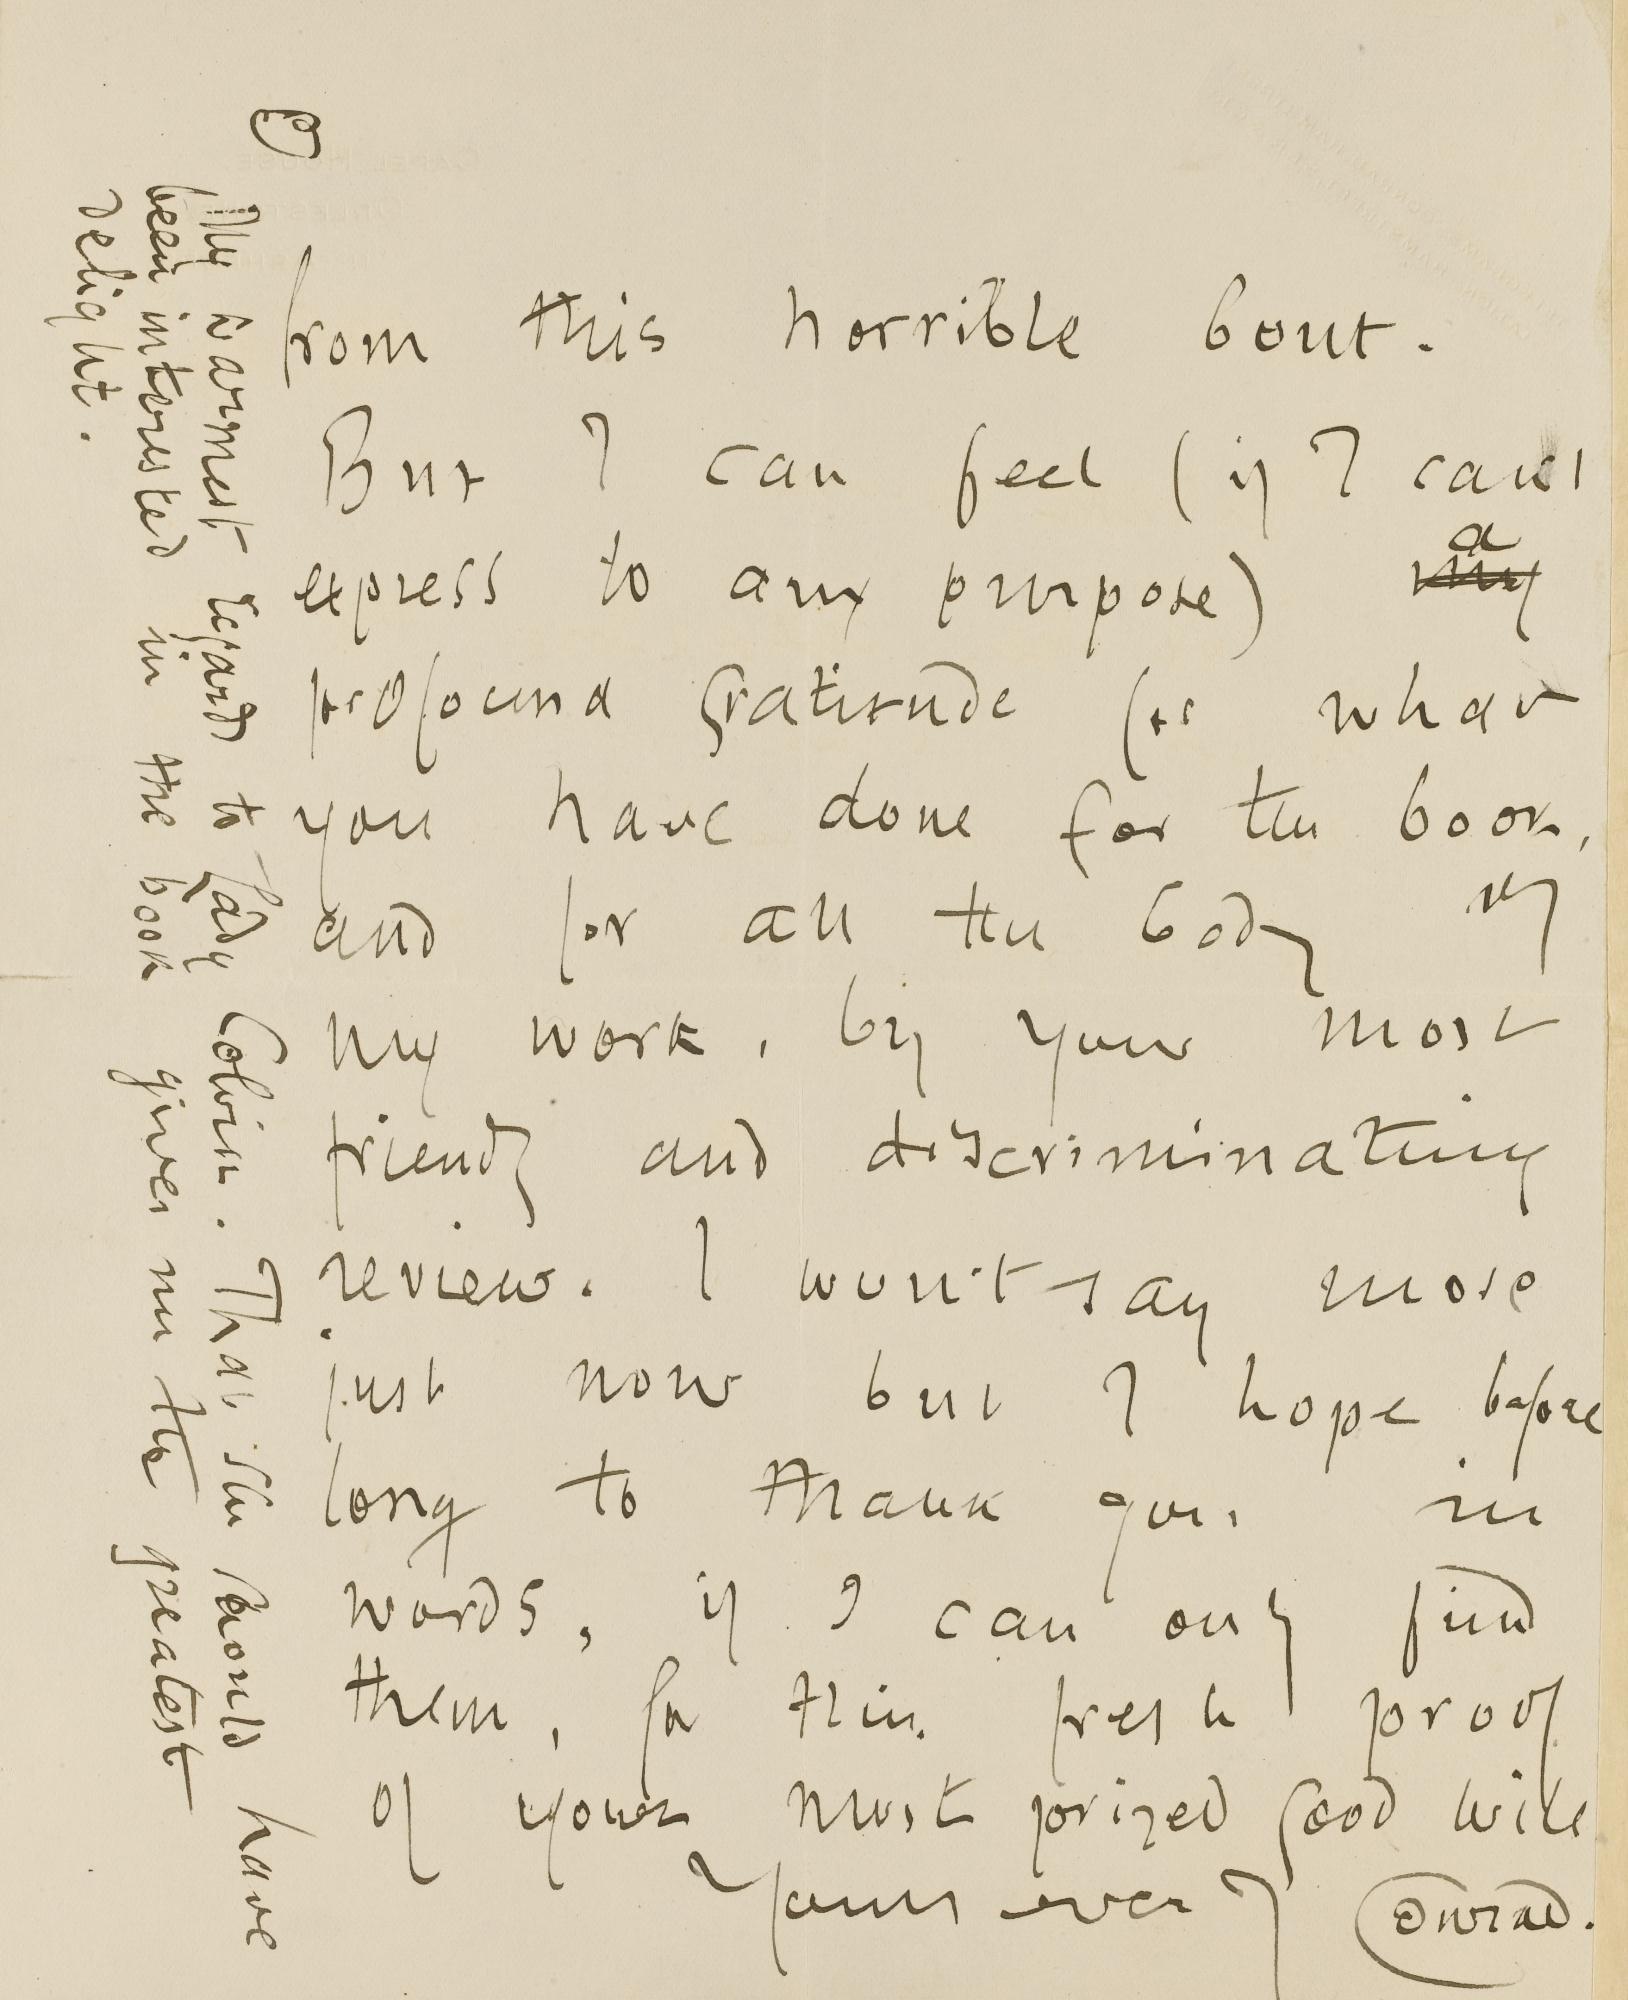 from this horrible bout.
But I can feel (if I can't
express to any purpose) my a
profound gratitude for what
you have done for the book,
and for all the body of
my work, by your most
friendly and discriminating
review. I won't say more
just now but I hope before
long to thank you, in
words, if I can only find
them, for this fresh proof
of your most prized good will
Yours ever J Conrad.
My warmest regards to Lady Colvin. That she should have
been interested in the book gives me the greatest
delight.